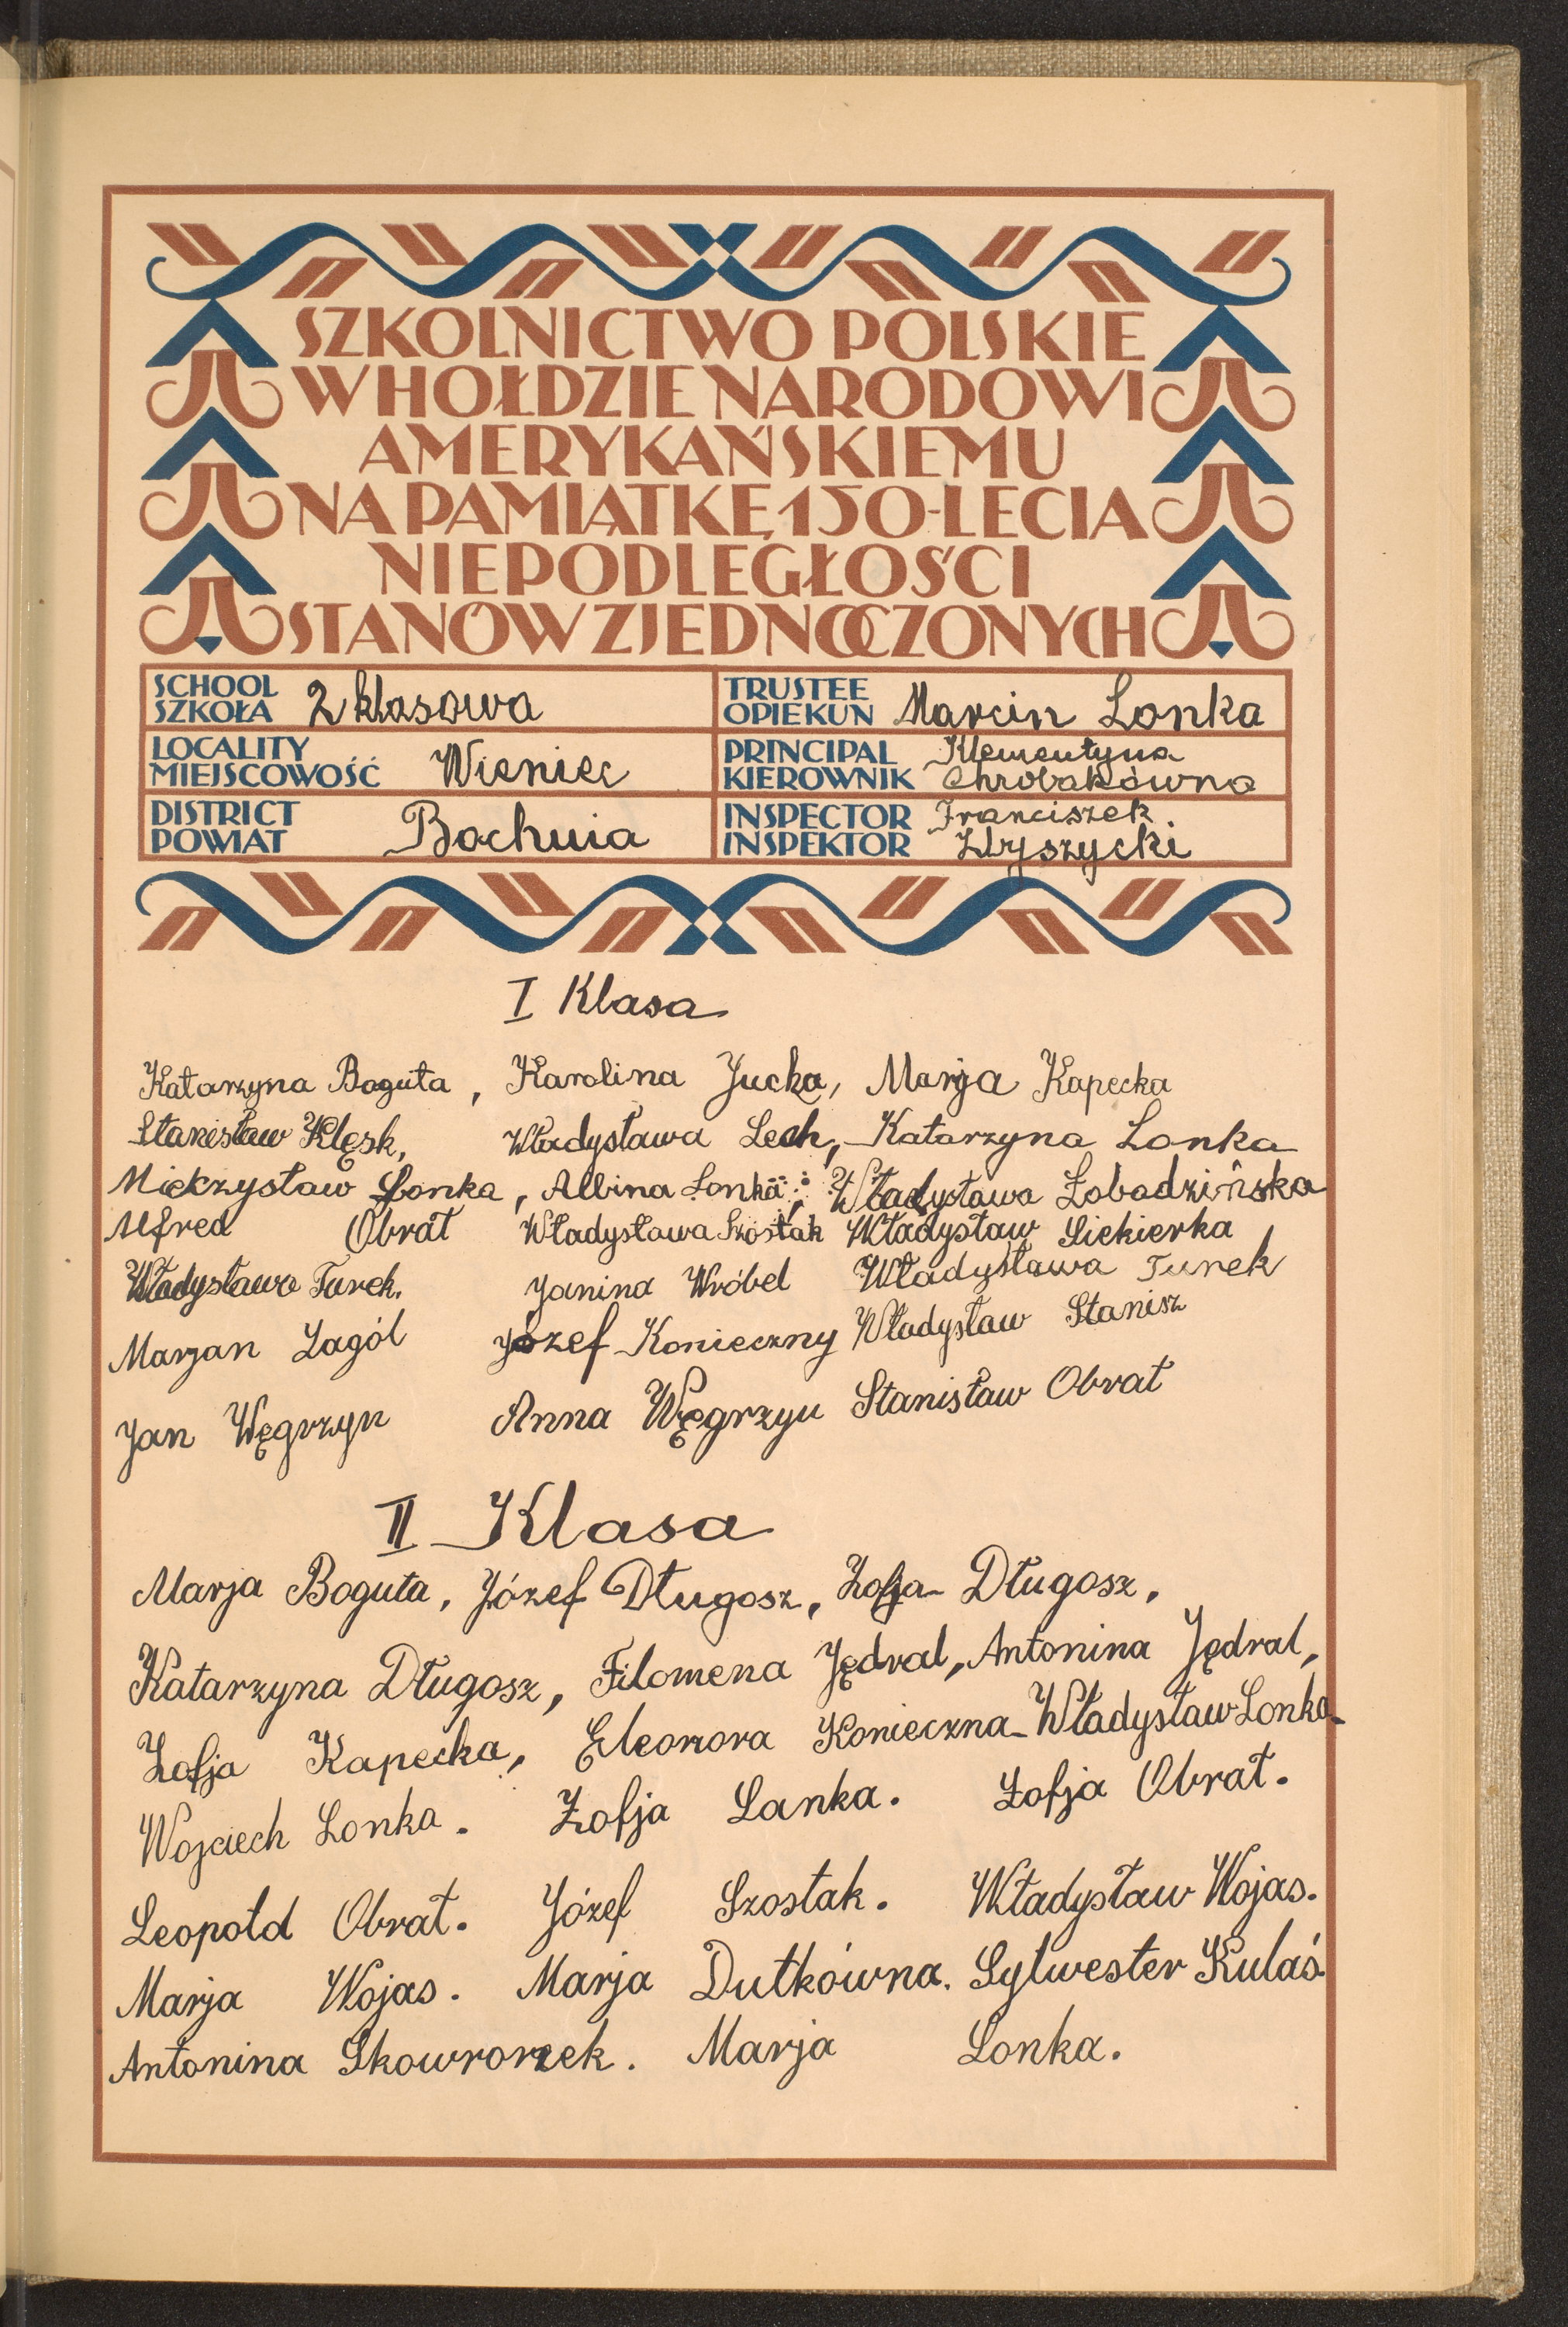 SZKOLNICTWO POLSKIE
W HOŁDZIE NARODOWI
AMERYKAŃSKIEMU
NA PAMIĄTKĘ 150-LECIA
NIEPODLEGŁOŚCI
STANÓW ZJEDNOCZONYCH
SCHOOL
SZKOŁA 2 klasowa
TRUSTEE
OPIEKUN Marcin Lonka
LOCALITY
MIEJSCOWOŚĆ Wieniec
PRINCIPAL Klementyna
KIEROWNIK Chrobakówna
DISTRICT
POWIAT Bochnia
INSPECTOR Franciszek.
INSPEKTOR
I Klasa
Katarzyna Boguta, Karolina Jucha, Marja Kapecka
Stanisław Klęsk, Władysława Lech, Katarzyna Lonka
Mieczysław Lonka, Albina Lonka, Władysława Łobodzińska
Alfred Obrat Władysława Szostak Władysław Siekierka
Władysława Turek. Janina Wróbel Władysława Turek
Marjan Żagól Józef Konieczny Władysław Stanisz
Jan Węgrzyn Anna Węgrzyn Stanisław Obrat
II Klasa
Marja Boguta, Józef Długosz, Zofja Długosz,
Katarzyna Długosz, Filomena Jędral, Antonina Jędral,
Zofja Kapecka, Eleonora Konieczna Władysław Lonka
Wojciech Lonka. Zofja Lanka. Zofja Obrat.
Leopold Obrat. Józef Szostak. Władysław Wojas.
Marja Wojas. Marja Dutkówna. Sylwester Kulaś
Antonina Skowronek. Marja Lonka.